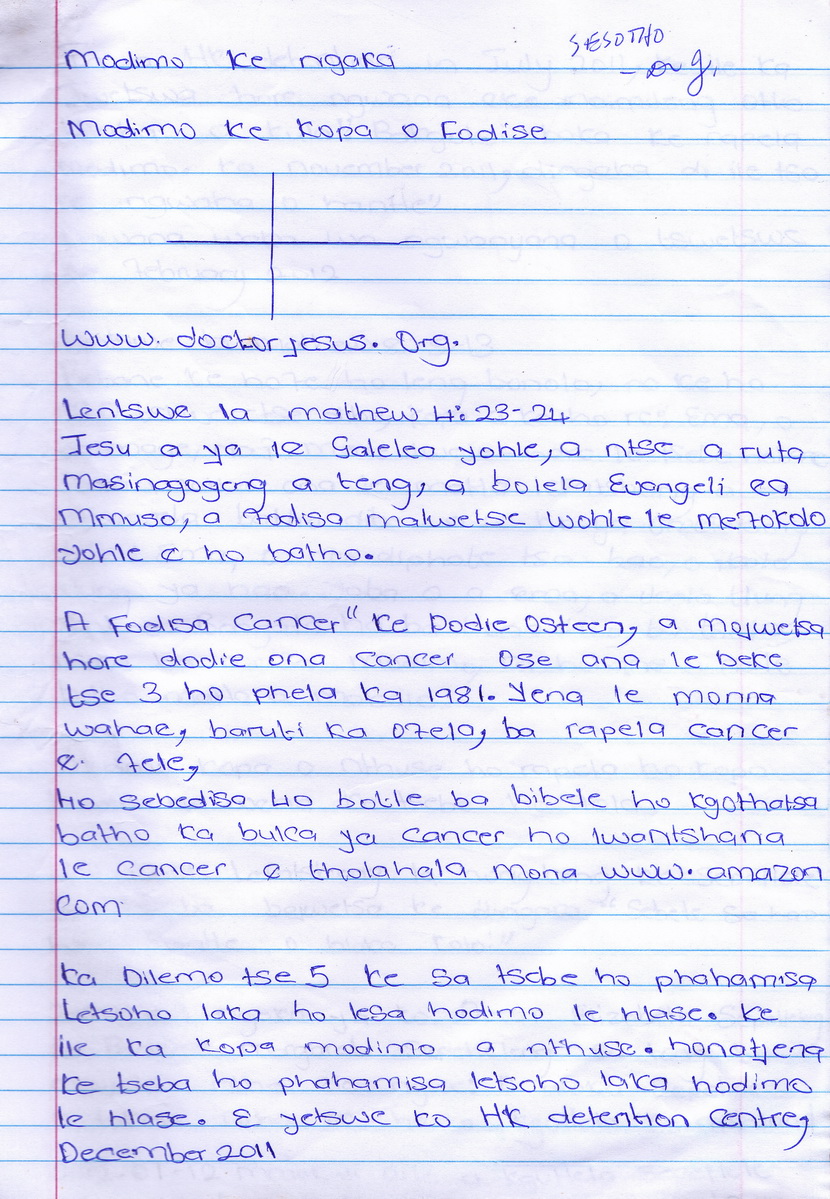 SESOTHO
Modimo ke ngaka
Modimo ke kopa o Fodise
www.doctorjesus.Org.
Lentswe la mathew 4:23-24
Jesu a ya le Galelea yohle, a ntse a ruta
masinagogeng a teng, a bolela Evangeli ea
Mmuso, a fodisa malwetse wohle le mefokolo
yohle e ho batho.
A Fodisa Cancer" ke Dodie Osteen, a mojwetsa
hore dodie ona cancer ose ana le beke
tse 3 ho phela ka 1981. Yena le monna
wahae, baruti ka ofela, ba rapela cancer
e. fele,
Ho sebedisa 40 botle ba bibele ho kgothatsa
batho ka buka ya cancer ho lwantshana
le cancer e tholahala mona www.amazon
com
ka Dilemo tse 5 ke sa tsebe ho phahamisa
Letsoho laka ho lesa hodimo le hlase. ke
ile ka kopa modimo a nthuse. honatjena
ke tseba ho phahamisa letsoho laka hodimo
le hlase. E yetswe ko HK detention Centre,
December 2011